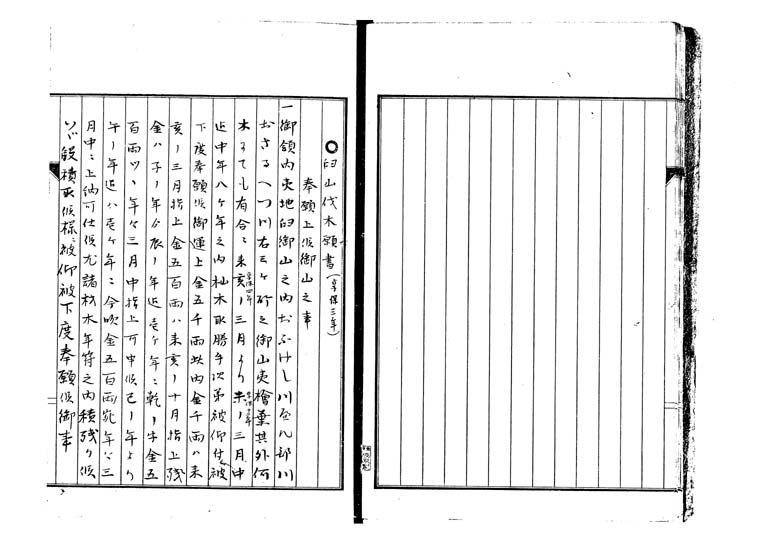 ●臼山伐木願書（享保三年）
奉願上候御山之事
一御領内夷地臼御山之内おふけし川登んべ川
おさるへつ川右三ヶ所之御山夷檜葉其外何
木にても有合ニ来亥ノ三月より来ノ三月中
迄中年八ヶ年之内杣木取勝手次第被仰付被
下度奉願候御運上金五千両此内金千両ハ来
亥ノ三月指上金五百両ハ来亥ノ十月指上残
金ハ子ノ年ゟ辰ノ年迄壱ヶ年ニ乾ノ字金五
百両ツヽ年々三月中指上可申候巳ノ年より
午ノ年迄ハ壱ヶ年ニ今吹金五百両宛年々三
月中ニ上納可仕候尤諸材木年符之内積残り候
ハヾ段積取候様ニ被仰被下度奉願候御事